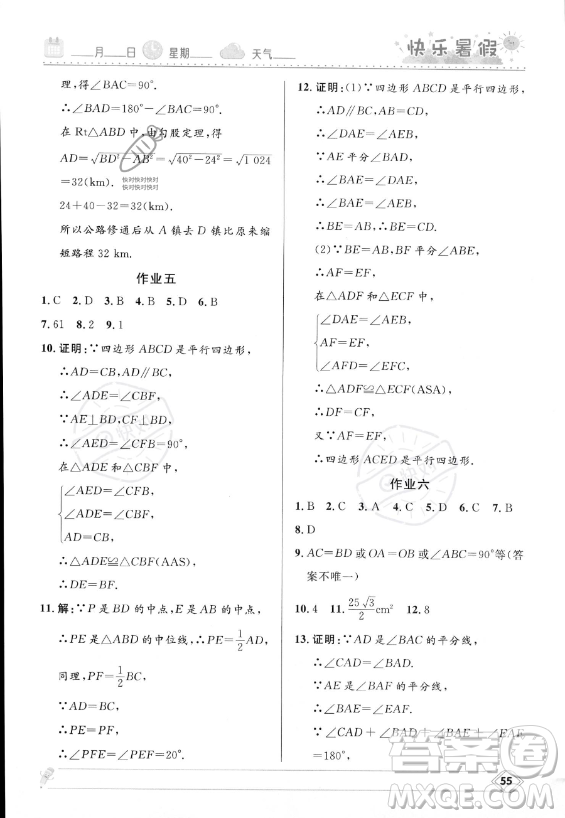 ____月____日 星期____ 天气____
快乐暑假
理，得∠BAC=90°.
∴∠BAD=180°-∠BAC=90°.
在 Rt△ABD 中，由勾股定理，得
AD=√(BD²-AB²)=√(40²-24²)=√1 024
=32(km).
快对快对快对
快对快对快对
24+40-32=32(km).
所以公路修通后从 A 镇去 D 镇比原来缩
短路程 32 km.
作业五
1.C 2.D 3.B 4.B 5.D 6.B
7.61 8.2 9.1
10.证明:∵四边形 ABCD 是平行四边形，
∴AD=CB，AD∥BC，
∴∠ADE=∠CBF，
∵AE⊥BD，CF⊥BD，
∴∠AED=∠CFB=90°，
在△ADE 和△CBF 中，
∠AED=∠CFB，
∠ADE=∠CBF，
AD=CB，
∴△ADE≌△CBF(AAS).
11.解:∵P 是 BD 的中点，E 是 AB 的中点，
∴PE 是△ABD 的中位线，∴PE=1/2AD，
同理，PF=1/2BC，
∵AD=BC，
∴PE=PF，
∴∠PFE=∠PEF=20°.
12.证明:(1)∵四边形 ABCD 是平行四边形，
∴AD∥BC，AB=CD，
∴∠DAE=∠AEB，
∵AE 平分∠BAD，
∴∠BAE=∠DAE，
∴∠BAE=∠AEB，
∴BE=AB，∴BE=CD.
(2)∵BE=AB，BF 平分∠ABE，
∴AF=EF，
在△ADF 和△ECF 中，
∠DAE=∠AEB，
AF=EF，
∠AFD=∠EFC，
∴△ADF≌△ECF(ASA)，
∴DF=CF，
又∵AF=EF，
∴四边形 ACED 是平行四边形.
作业六
1.B 2.C 3.A 4.C 5.C 6.C 7.B
8.D
9.AC=BD 或 OA=OB 或∠ABC=90°等(答
案不唯一)
10.4 11.25√3/2cm² 12.8
13.证明:∵AD 是∠BAC 的平分线，
∴∠CAD=∠BAD.
∵AE 是∠BAF 的平分线，
∴∠BAE=∠EAF.
∵∠CAD+∠BAD+∠BAE+∠EAF
=180°，
55
答案圈
MXQE.COM